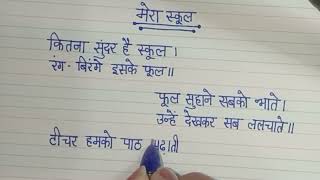 मेरा स्कूल
कितना सुंदर है स्कूल।
रंग-बिरंगे इसके फूल॥
फूल सुहाने सबको भाते।
उन्हें देखकर सब ललचाते॥
टीचर हमको पाठ पढाती